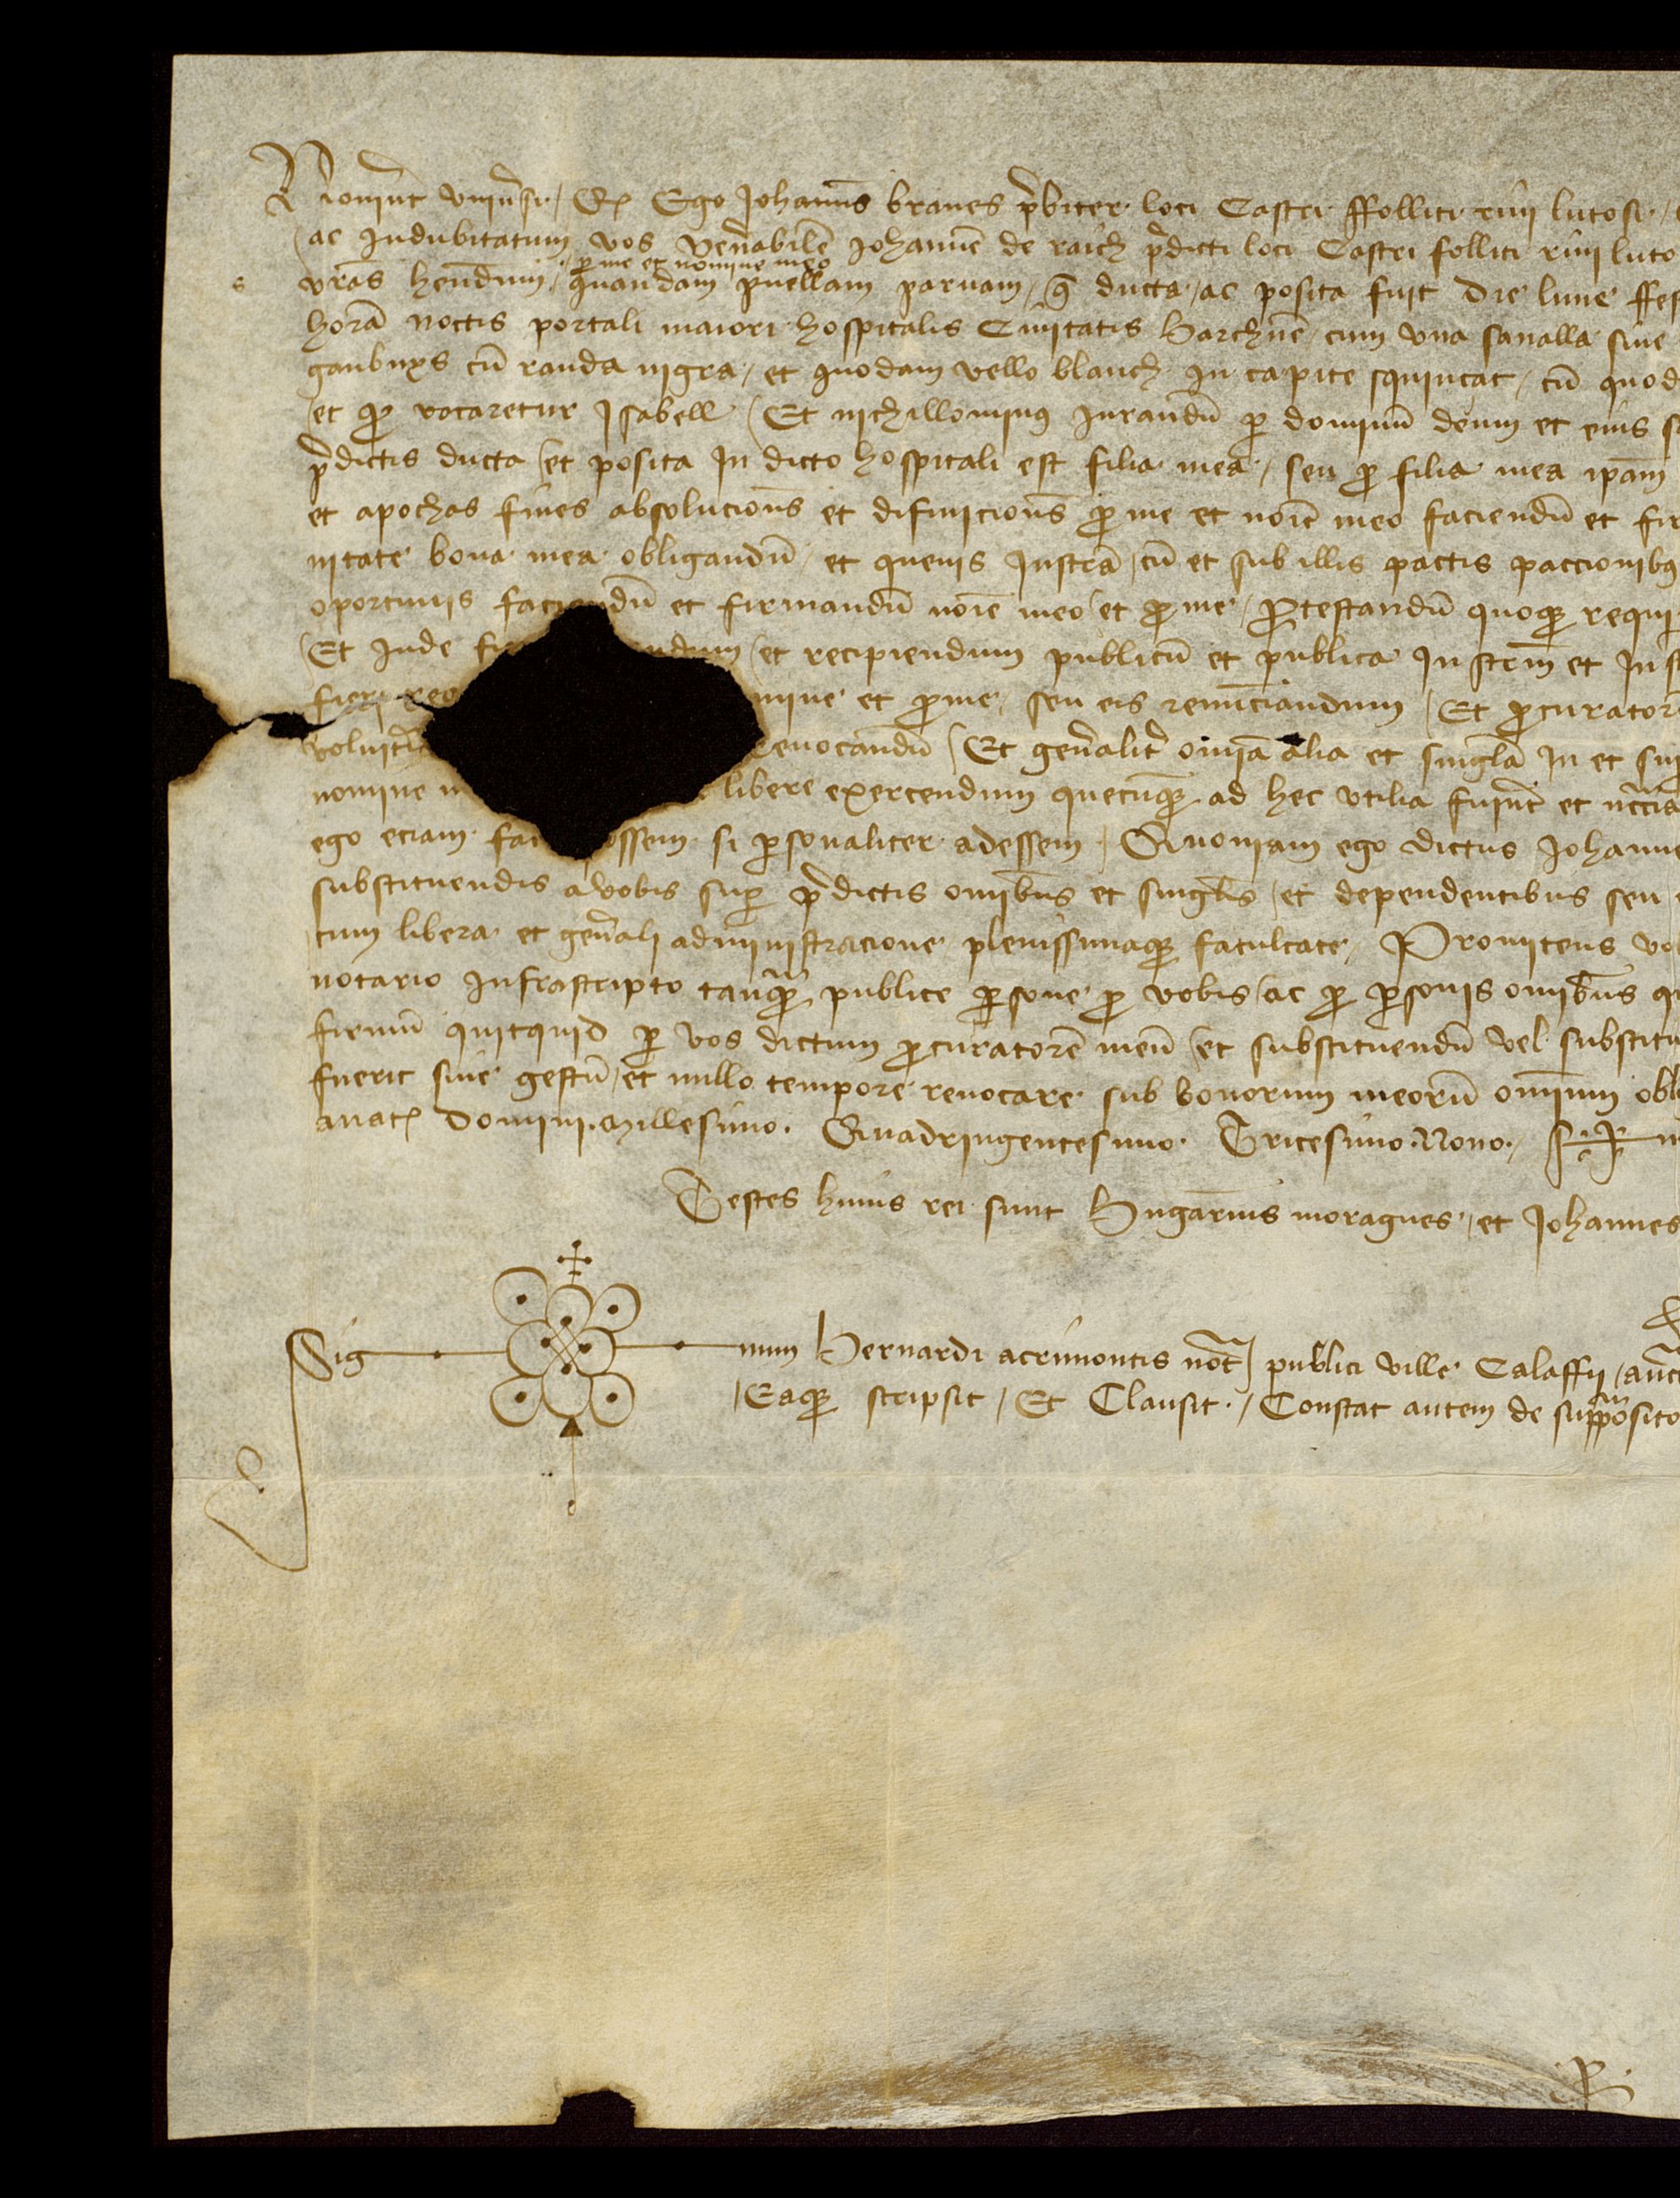 Noverint univ̅si / Q Ego Johannes branes p̅biter loci Castri ffolliti rivi lutosi
ac Indubitatum vos Ven̅abilē Johannē de raich p̅dicti loci Castri folliti rivi luto
per me et nomine meo
vr̅as hend̅um quandam puellam parvam / q̅ ducta / ac posita fuit Die lune ffes
horā noctis portali maiori hospitalis Civitatis Barchn̅e cum una sanalla sive
ganbuxs cū randa nigra / et quodam vello blanch In capite squincat / cū quod
et qꝫ vocaretur Isabell / Et nichillominus Jurandū ꝑ dominū deum et eius s
p̅dictis ducta et posita In dicto hospitali est filia mea / seu ꝓ filia mea ip̅am
et apochas fines absoluciones et difiniciones ꝓ me et no̅ie meo faciendū et fir
nitate bona mea obligandū / et quevis Instr̅a / cū et sub illis pactis paccionibꝰ
oportunis faciendū et firmandū no̅ie meo et ꝓ me / Protestandū quoqꝫ requi
Et Inde fi ndum et recipiendum publicū et publica Instrm̅ et Inst
fieri req mine et ꝓ me / seu eis renūciandum / Et ꝓcurator
volueri revocandū / Et gen̅alit̅ om̅ia alia et singl̅a In et sup
nomine m libere exercendum quecūqꝫ ad hec utilia fuer̅int et nec̅cia
ego eciam fac ossem si ꝑsonaliter adessem / Quoniam ego dictus Johanne
substituendis a vobis suꝑ p̅dictis omibus et singlis et dependentibus seu
cum libera et gen̅ali administracione plenissimaqꝫ facultate / Promitens vo
notario Infrascripto tanqꝫ publice ꝑsone ꝓ vobis / ac ꝓ ꝑsonis omibus qu
firmū quitquid ꝑ vos dictum ꝓcuratorē meū et substituendū vel substitu
fuerit sive gestū / et nullo tempore revocare sub bonorum meorū omnium obl
a nat̅ Domini Millesimo. Quadringentesimo. Tricesimo. Nono. / S
Testes huius rei sunt Bngarius moragues / et Johannes
Sig num Bernardi acrimontis not̅ publici ville Calaffii / auct
Eaqꝫ scripsit / Et Clausit. / Constat autem de supposito